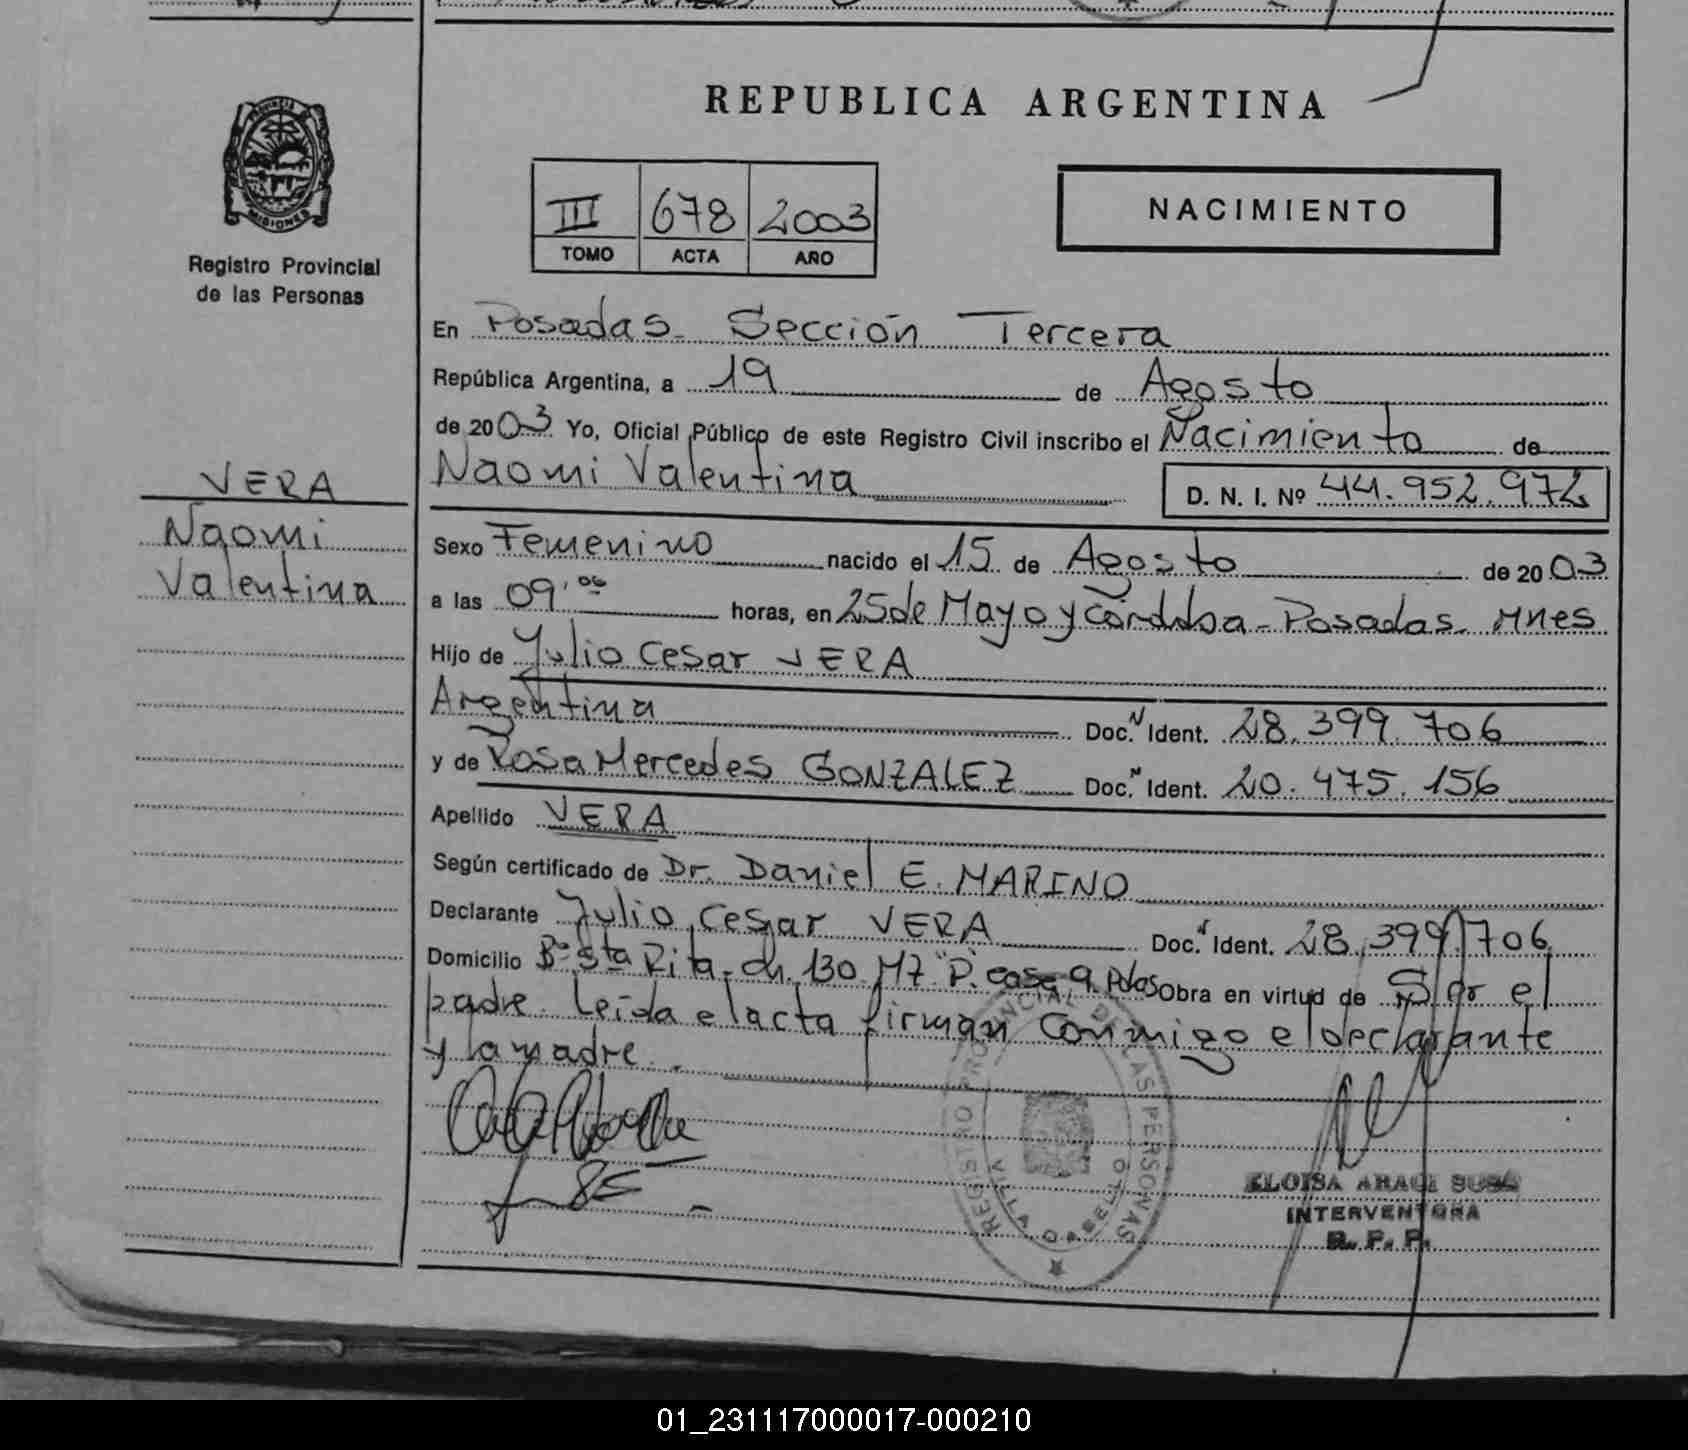 REPUBLICA ARGENTINA
PROVINCIA
MISIONES
Registro Provincial
de las Personas
III 678 2003
TOMO ACTA AÑO
NACIMIENTO
VERA
Naomi
Valentina
En Posadas - Sección Tercera
República Argentina, a 19 de Agosto
de 2003 Yo, Oficial Público de este Registro Civil inscribo el Nacimiento de
Naomi Valentina D. N. I. Nº 44.952.972
Sexo Femenino nacido el 15 de Agosto de 2003
a las 09,06 horas, en 25 de Mayo y Córdoba - Posadas - Mnes
Hijo de Julio Cesar VERA
Argentina Doc. N Ident. 28.399.706
y de Rosa Mercedes GONZALEZ Doc. N Ident. 20.475.156
Apellido VERA
Según certificado de Dr. Daniel E. MARINO
Declarante Julio Cesar VERA Doc. Ident. 28.399.706
Domicilio Bº Sta Rita - ch. 130 Mz "P" casa 9. Pdas Obra en virtud de Ser el
padre. Leída el acta firman conmigo el declarante
y la madre.
REGISTRO PROVINCIAL DE LAS PERSONAS
VILLA
ELOISA ARACI
INTERVENTORA
R. P. P.
01_231117000017-000210